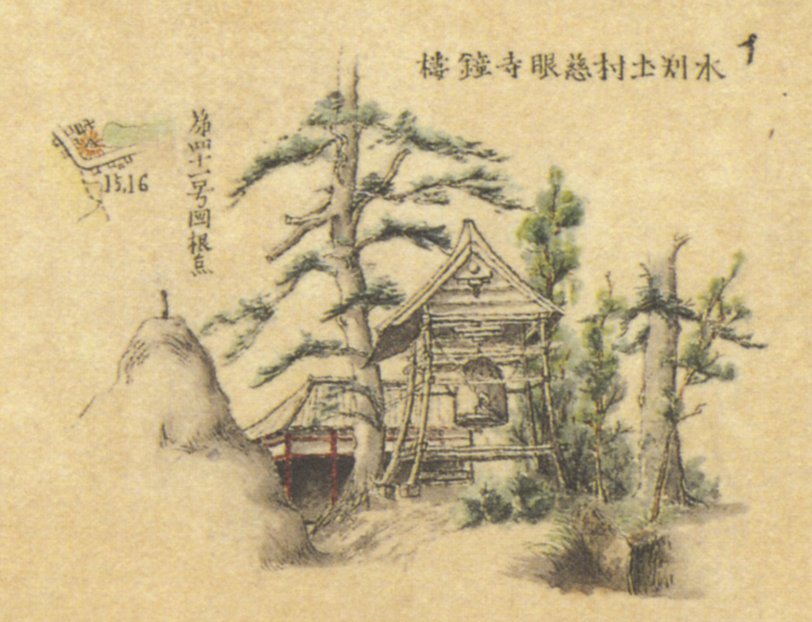 水判土村慈眼寺鐘樓
第四十一号図根点
15,16